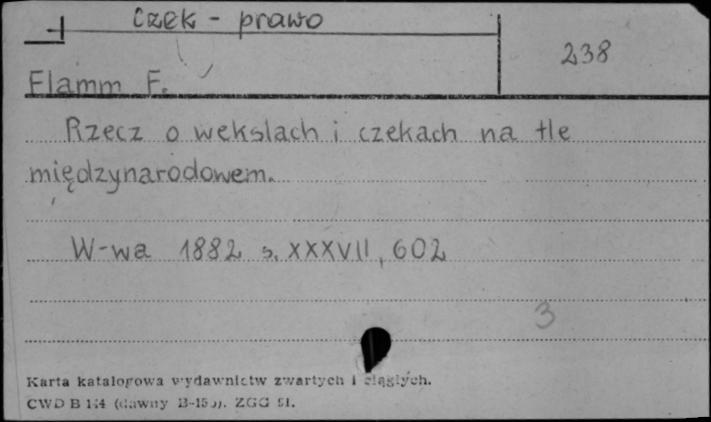 Czek - prawo
238
Flamm F.
Rzecz o wekslach i czekach na tle
międzynarodowem.
W-wa 1882 s. XXXVII, 602
3
Karta katalogowa wydawnictw zwartych i ciągłych.
CWD B 144 (dawny B-150). ZGG 51.